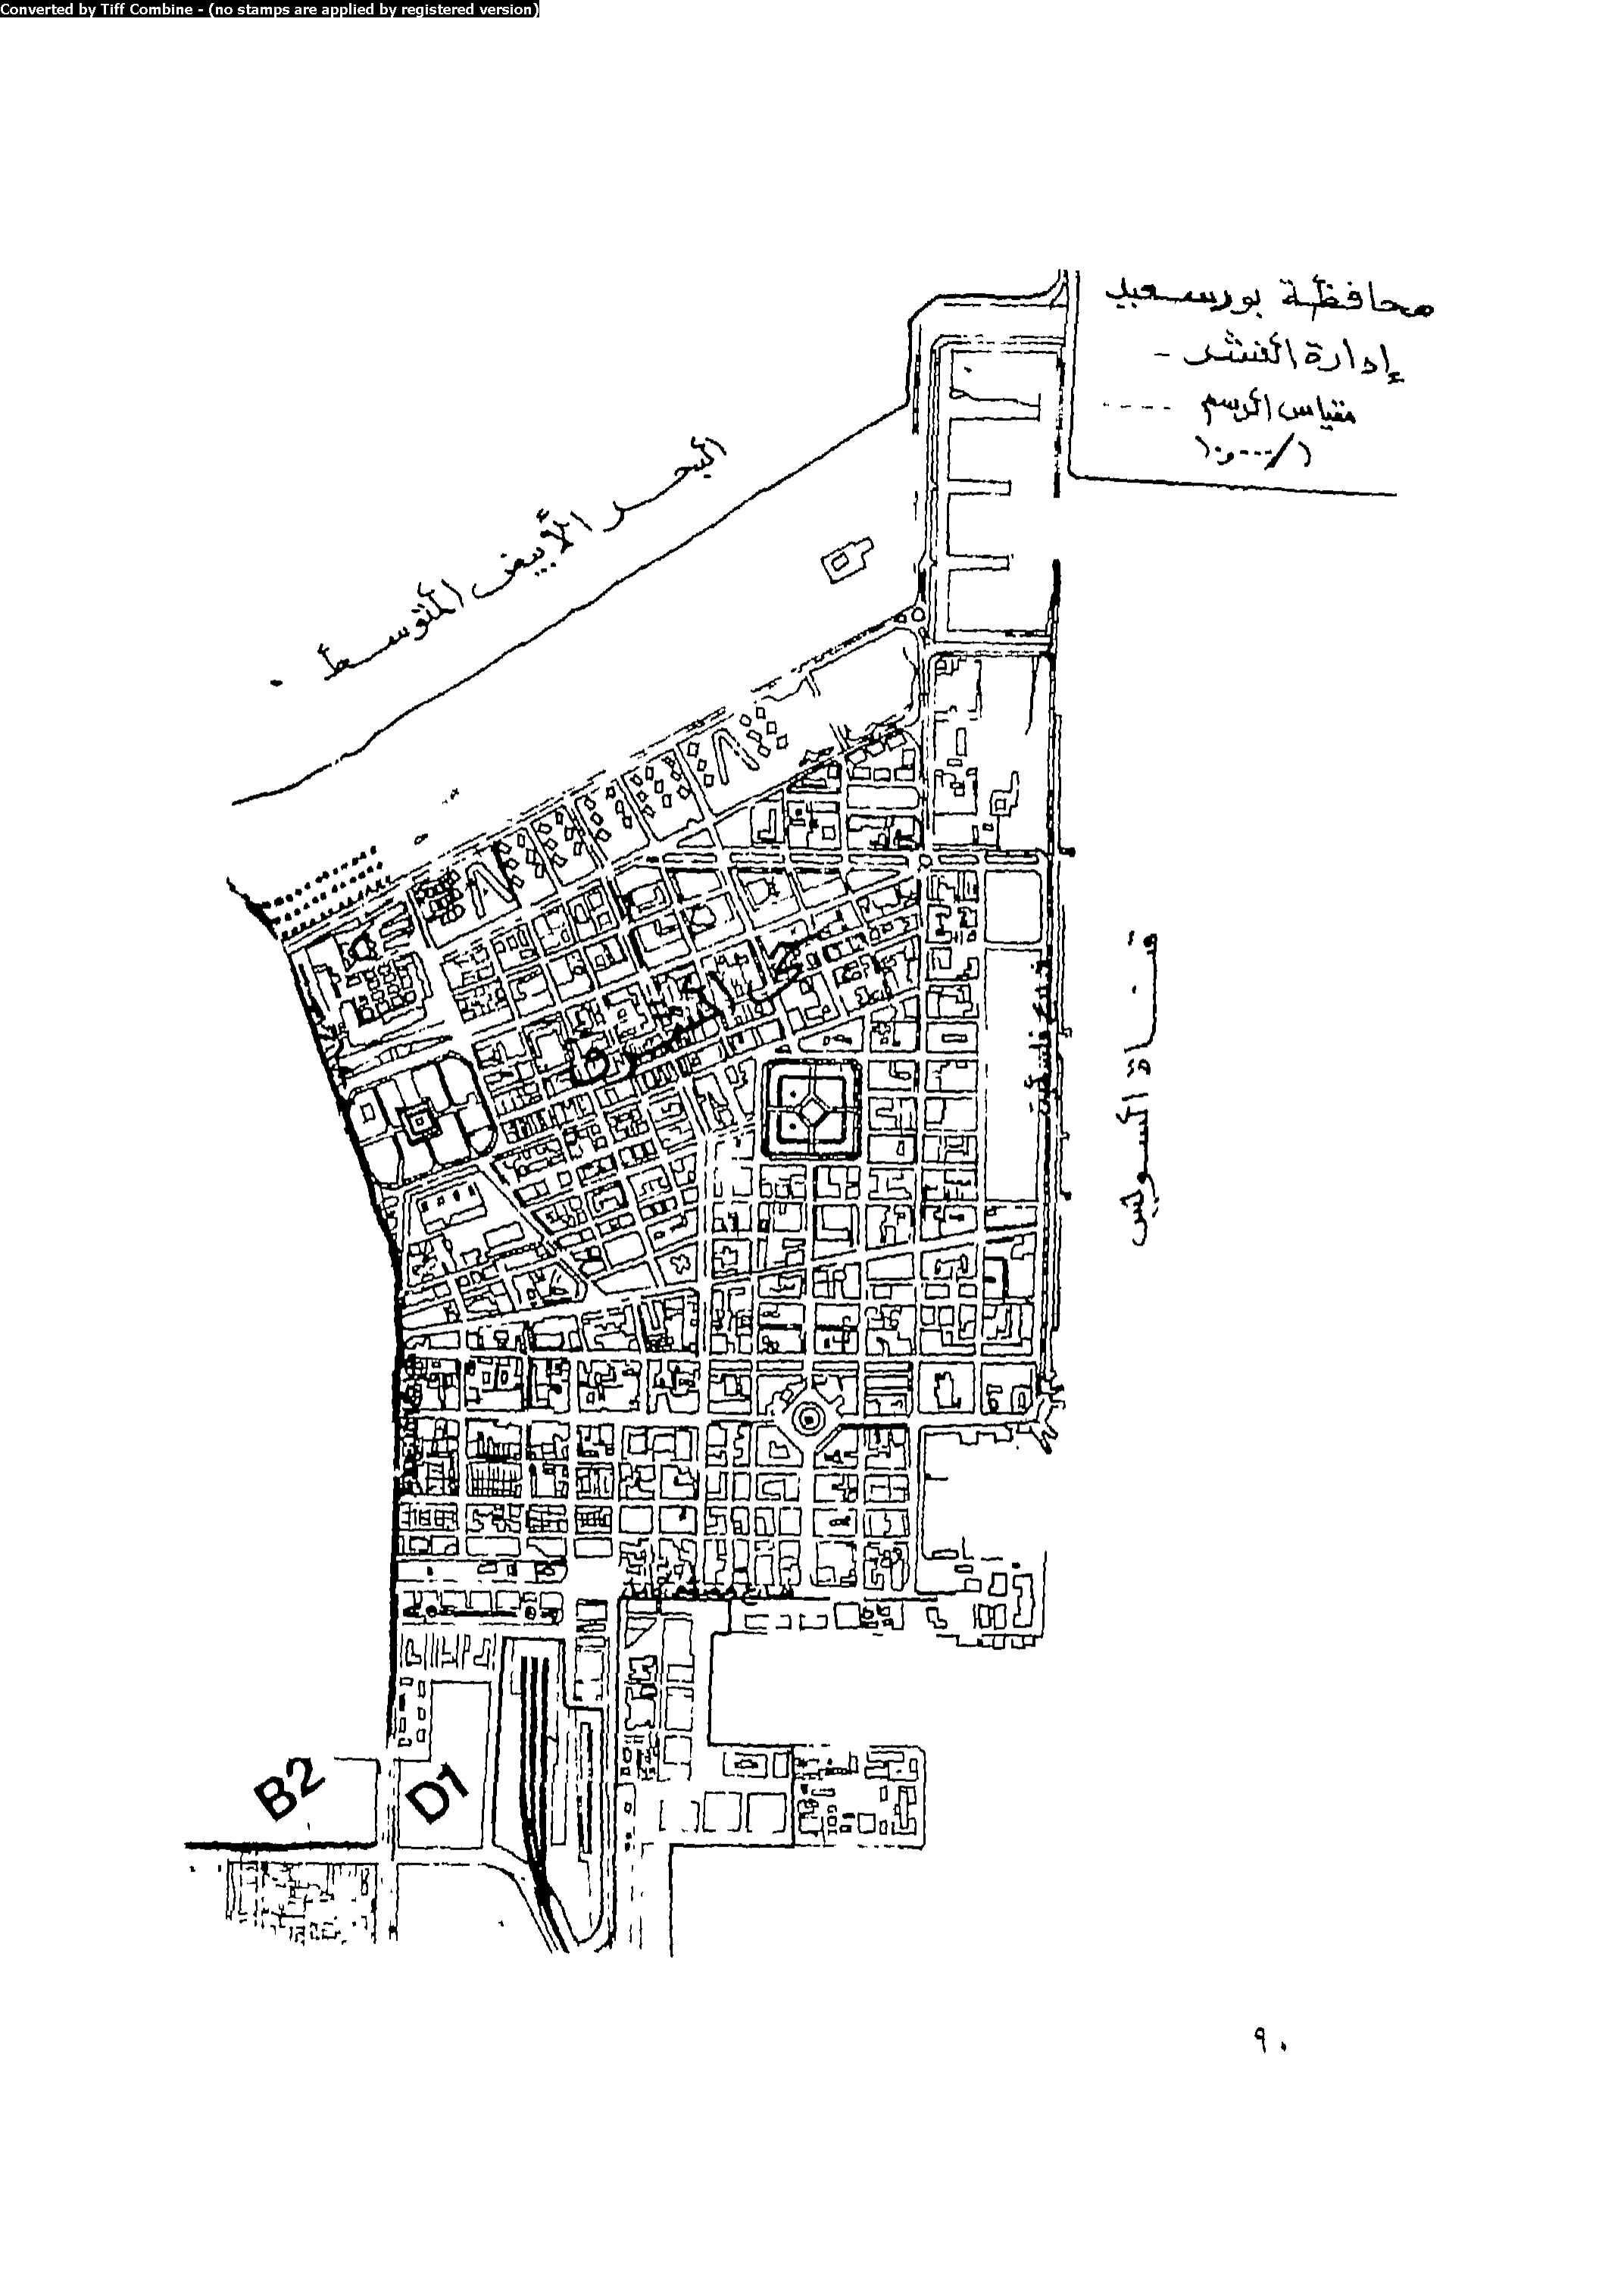 Converted by Tiff Combine - (no stamps are applied by registered version)
محافظة بورسعيد
إدارة النشر -
مقياس الرسم - - - -
البحر الأبيض المتوسط .
قناة السويس
حى الشرق
B2
D1
٩٠